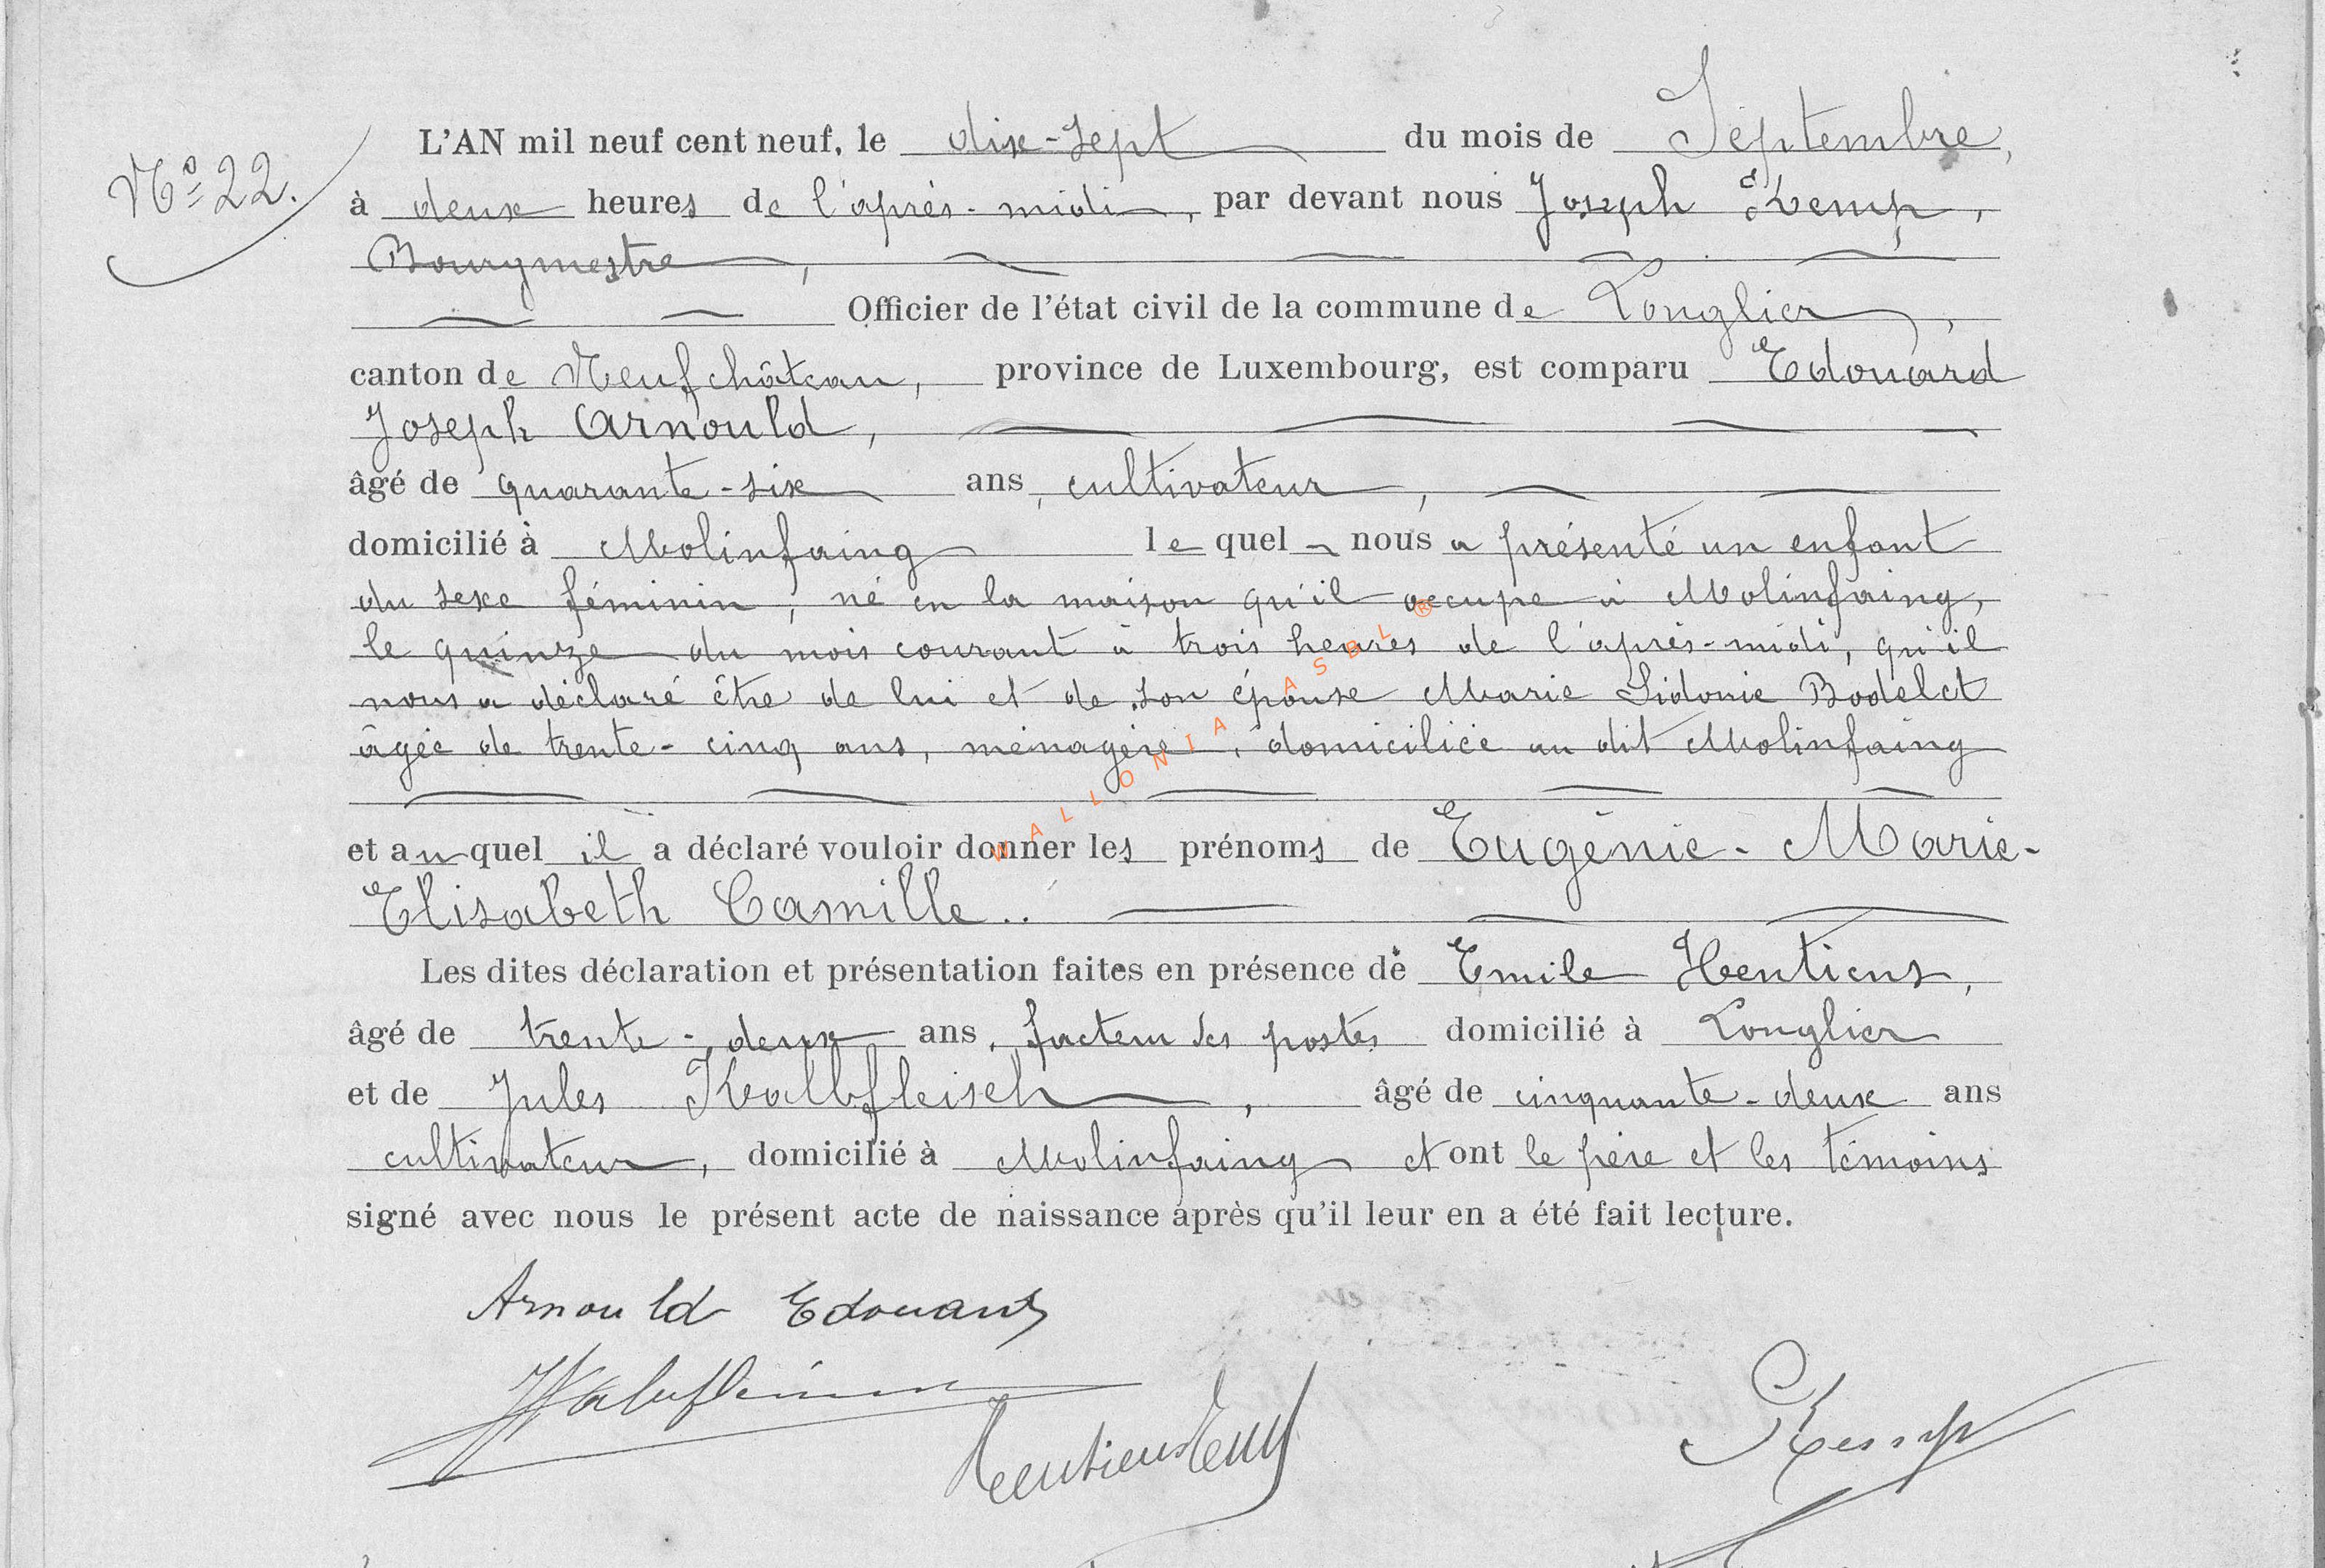 N° 22.
L'AN mil neuf cent neuf, le dix-sept du mois de Septembre,
à deux heures de l'après-midi, par devant nous Joseph Kemp,
Bourgmestre,
Officier de l'état civil de la commune de Longlier,
canton de Neufchâteau, province de Luxembourg, est comparu Edouard
Joseph Arnould,
âgé de quarante-six ans, cultivateur,
domicilié à Molinfaing lequel nous a présenté un enfant
du sexe féminin, né en la maison qu'il occupe à Molinfaing,
le quinze du mois courant à trois heures de l'après-midi, qu'il
nous a déclaré être de lui et de son épouse Marie Sidonie Bodelet
âgée de trente-cinq ans, ménagère, domiciliée au dit Molinfaing
et auquel il a déclaré vouloir donner les prénoms de Eugénie-Marie-
Elisabeth Camille..
Les dites déclaration et présentation faites en présence de Emile Hentiens,
âgé de trente-deux ans, facteur des postes domicilié à Longlier
et de Jules Kalbfleisch, âgé de cinquante-deux ans
cultivateur, domicilié à Molinfaing et ont le père et les témoins
signé avec nous le présent acte de naissance après qu'il leur en a été fait lecture.
Arnould Edouard
Kemp
WALLONIA ASBL ®